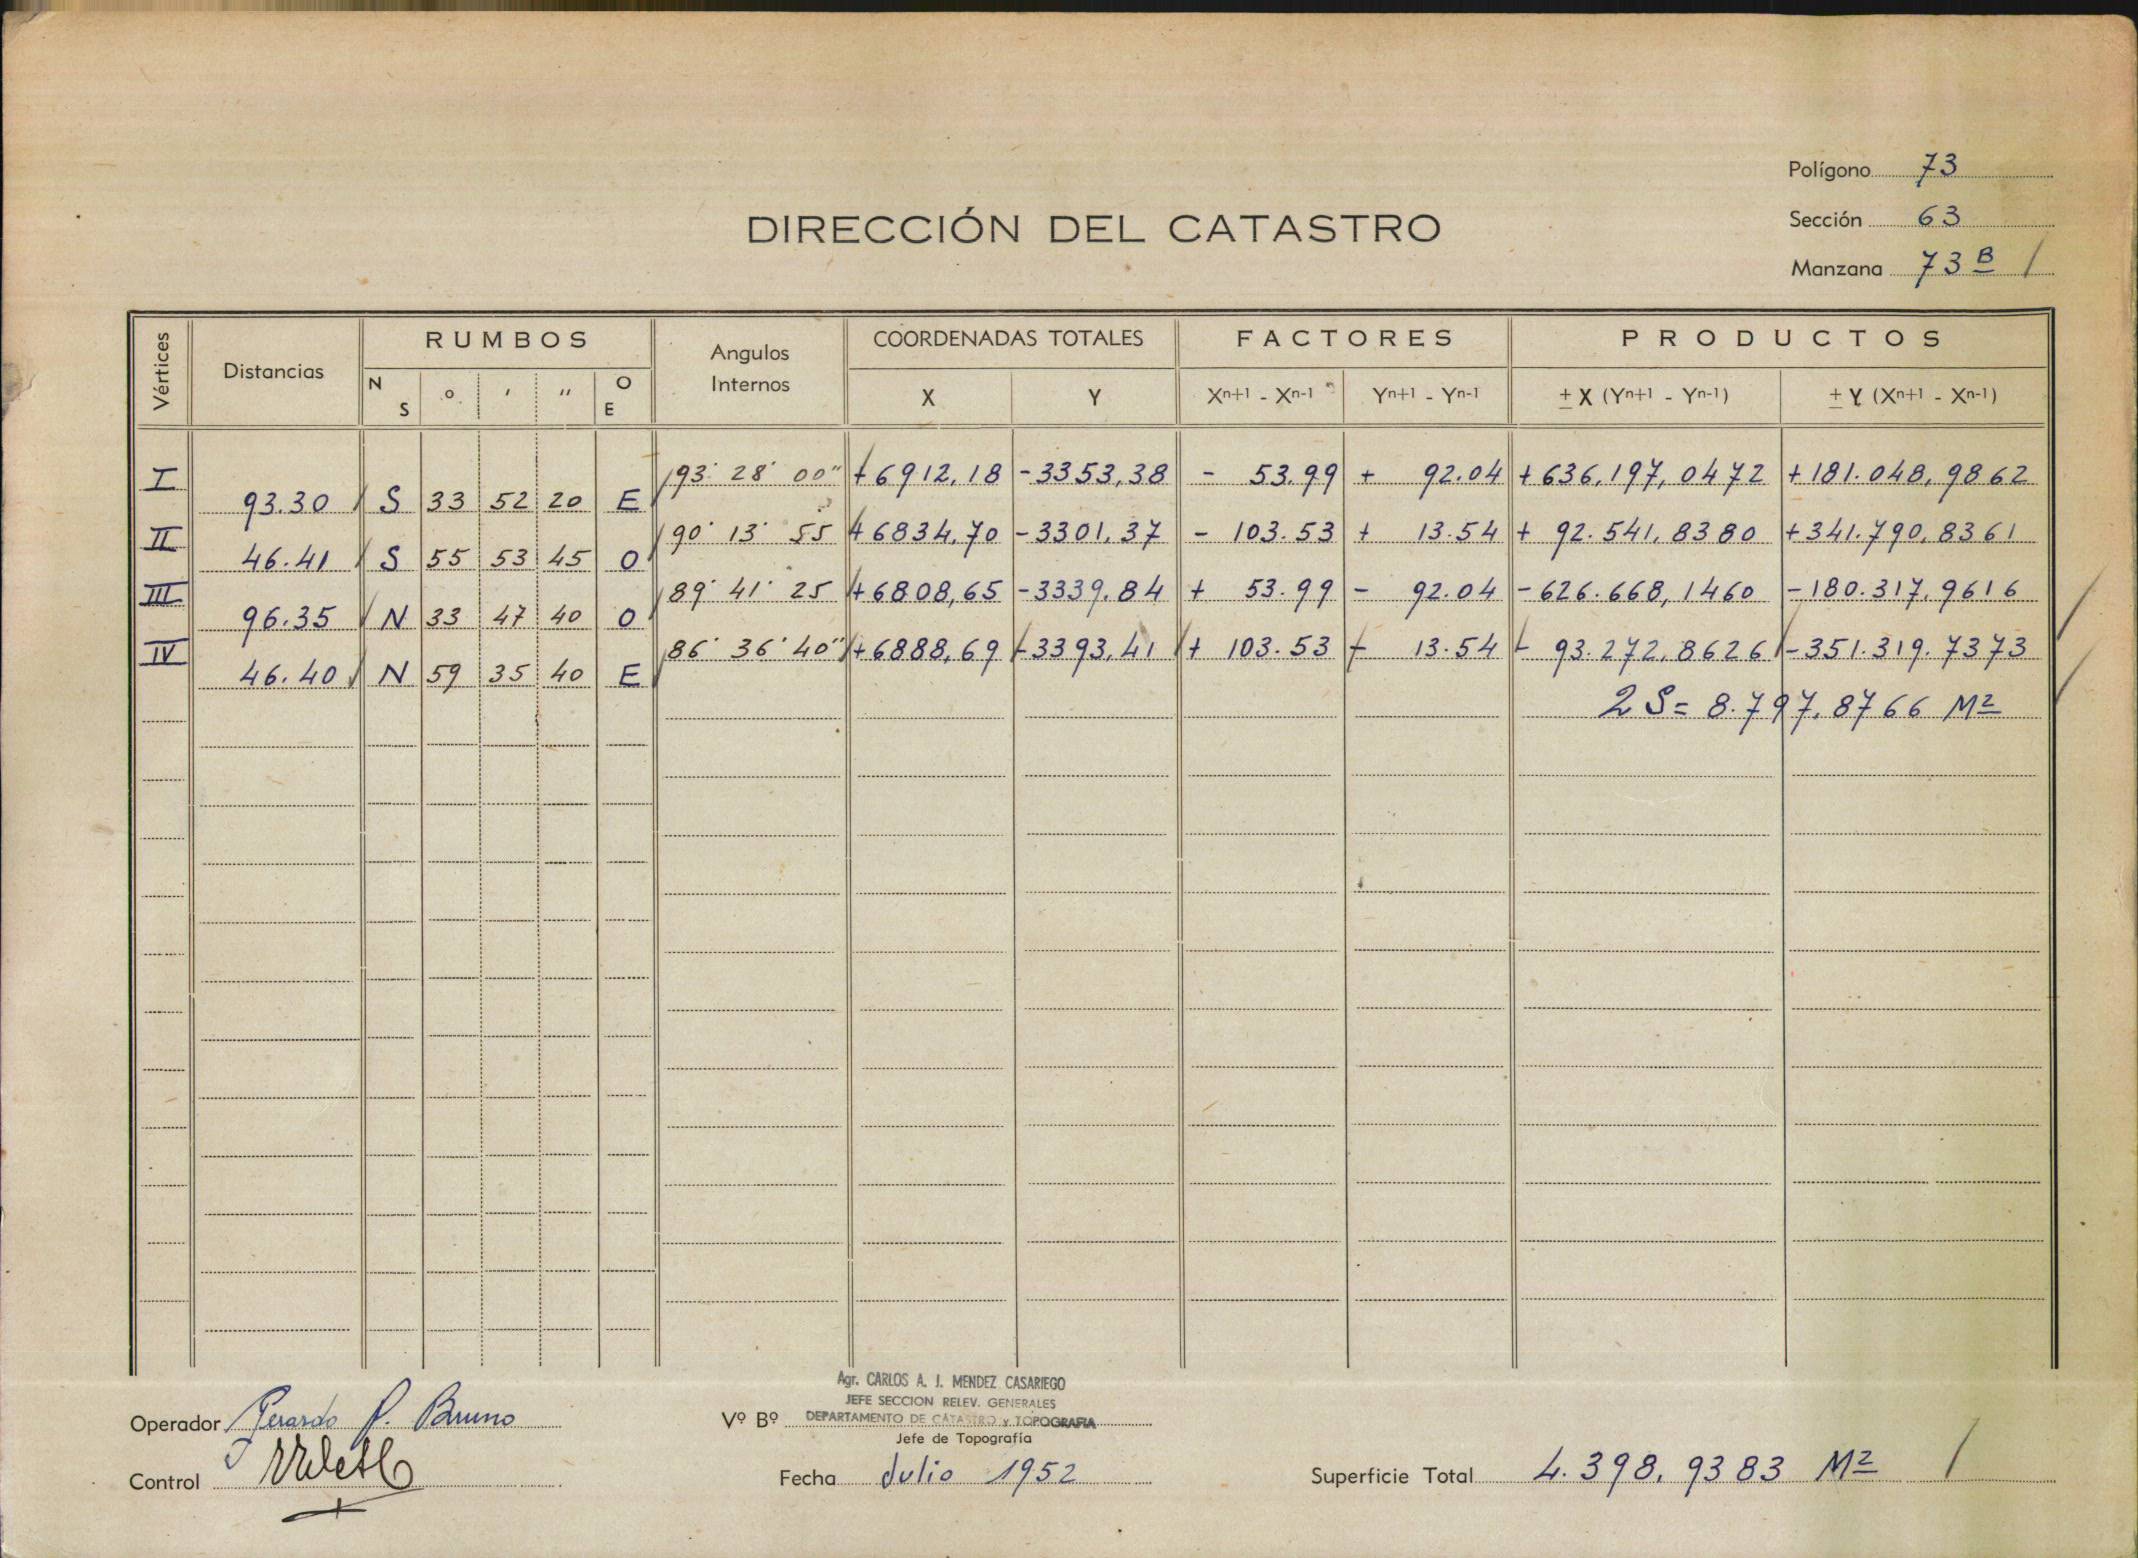 Polígono 73
DIRECCIÓN DEL CATASTRO
Sección 63
Manzana 73 B /
Vértices Distancias RUMBOS Angulos Internos COORDENADAS TOTALES FACTORES PRODUCTOS
N S ° ' " O E X Y Xn+1 - Xn-1 Yn+1 - Yn-1 ± X (Yn+1 - Yn-1) ± Y (Xn+1 - Xn-1)
I 93° 28' 00" +6912,18 -3353,38 - 53.99 + 92.04 +636.197,0472 +181.048,9862
93.30 S 33 52 20 E
II 90° 13' 55 +6834,70 -3301,37 - 103.53 + 13.54 + 92.541,8380 +341.790,8361
46.41 S 55 53 45 O
III 89° 41' 25 +6808,65 -3339.84 + 53.99 - 92.04 -626.668,1460 -180.317,9616
96.35 N 33 47 40 O
IV 86° 36' 40" +6888,69 -3393,41 + 103.53 - 13.54 - 93.272,8626 -351.319.7373
46.40 N 59 35 40 E
2 S = 8.797,8766 M2
Agr. CARLOS A. J. MENDEZ CASARIEGO
JEFE SECCION RELEV. GENERALES
Operador Gerardo P. Bruno Vº Bº DEPARTAMENTO DE CATASTRO y TOPOGRAFIA
Jefe de Topografía
Control Fecha Julio 1952 Superficie Total 4.398,9383 M2 /